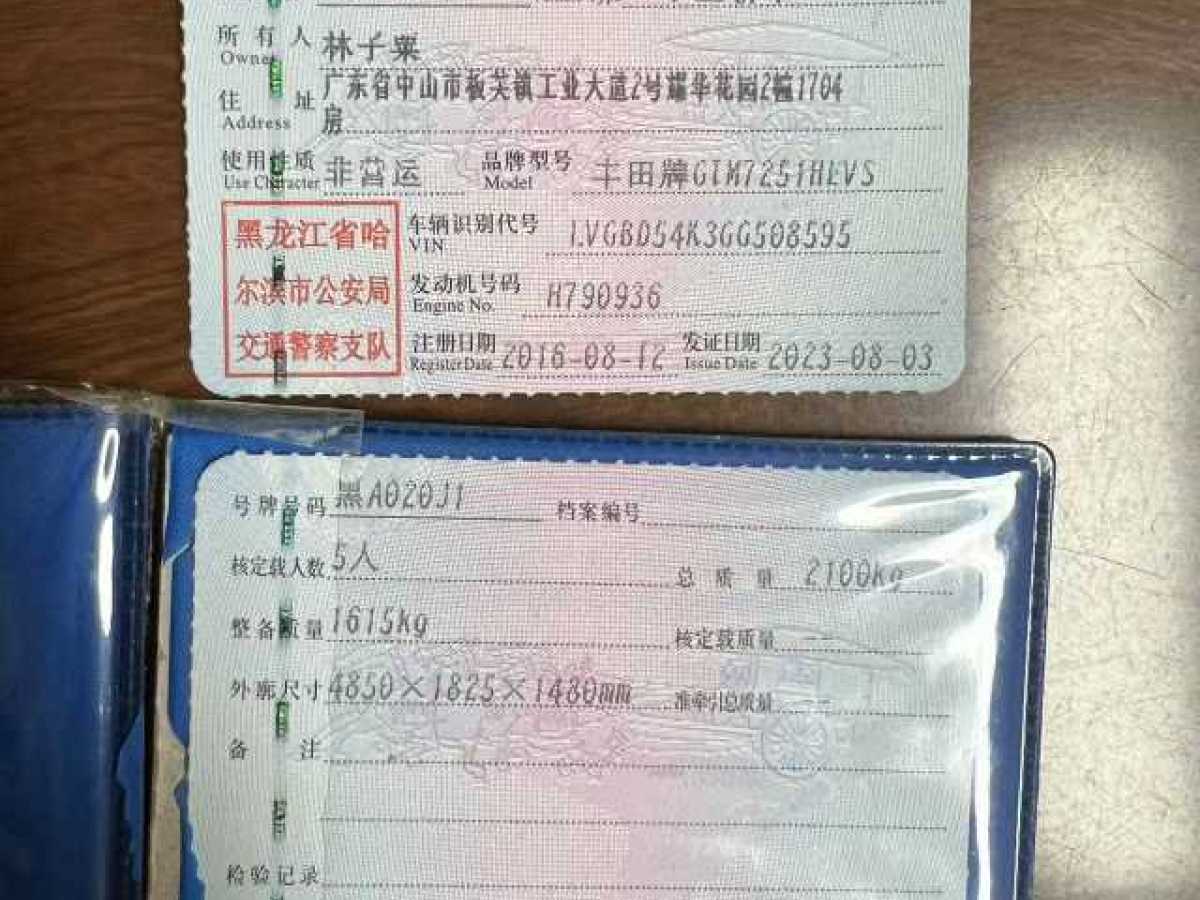 所有人 林子粟
Owner
广东省中山市板芙镇工业大道2号耀华花园2幢1704
住址 房
Address
使用性质 非营运 品牌型号 丰田牌GTM7251HLVS
Use Character Model
黑龙江省哈
尔滨市公安局
交通警察支队
车辆识别代号 LVGBD54K3GG508595
VIN
发动机号码 H790936
Engine No.
注册日期 2016-08-12 发证日期 2023-08-03
Register Date Issue Date
号牌号码 黑A020J1 档案编号
核定载人数 5人 总质量 2100kg
整备质量 1615kg 核定载质量 --
外廓尺寸 4850×1825×1480mm 准牵引总质量 --
备注
检验记录